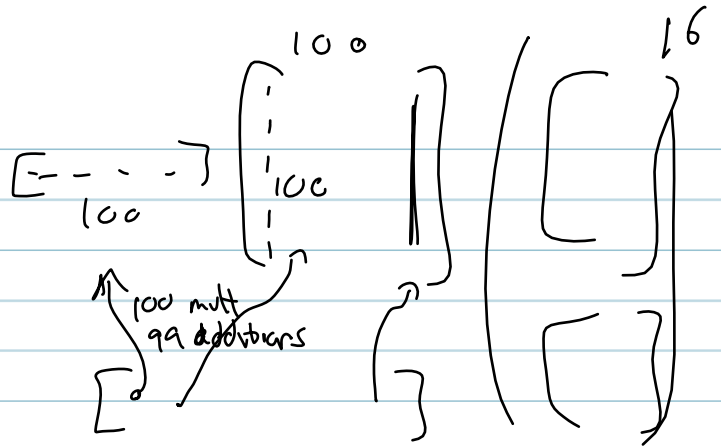 100
16
100
100
100 mult
99 additions